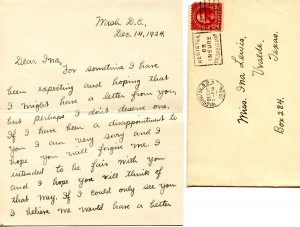 Wash. D.C.,
Dec. 14, 1924.
Dear Ina,
For sometime I have
been expecting and hoping that
I might have a letter from you,
but perhaps I don't deserve one.
If I have been a disappointment to
you I am very sorry and I
hope you will forgive me. I
intended to be fair with you
and I hope you will think of
that way. If I could only see you
I believe we would have a better
REGISTER
OR
INSURE
Miss. Ina Lewis,
Uvalde,
Texas.
Box 284.